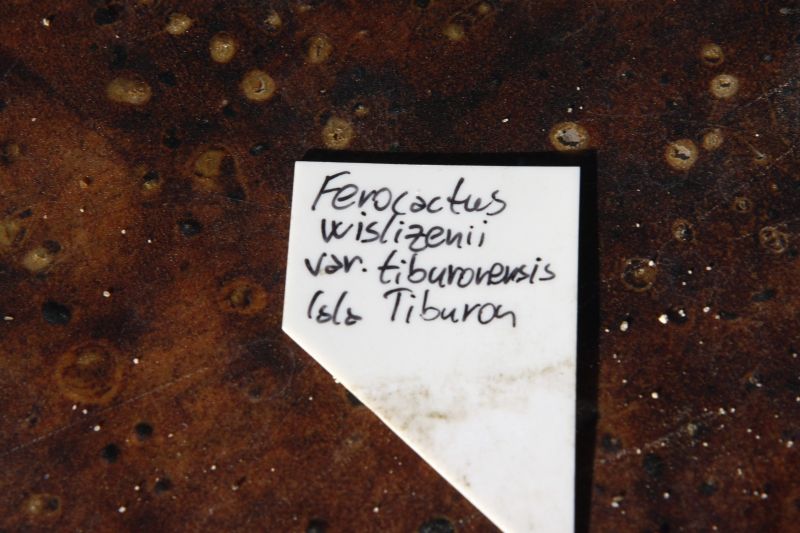 Ferocactus
wislizenii
var. tiburonensis
Isla Tiburon